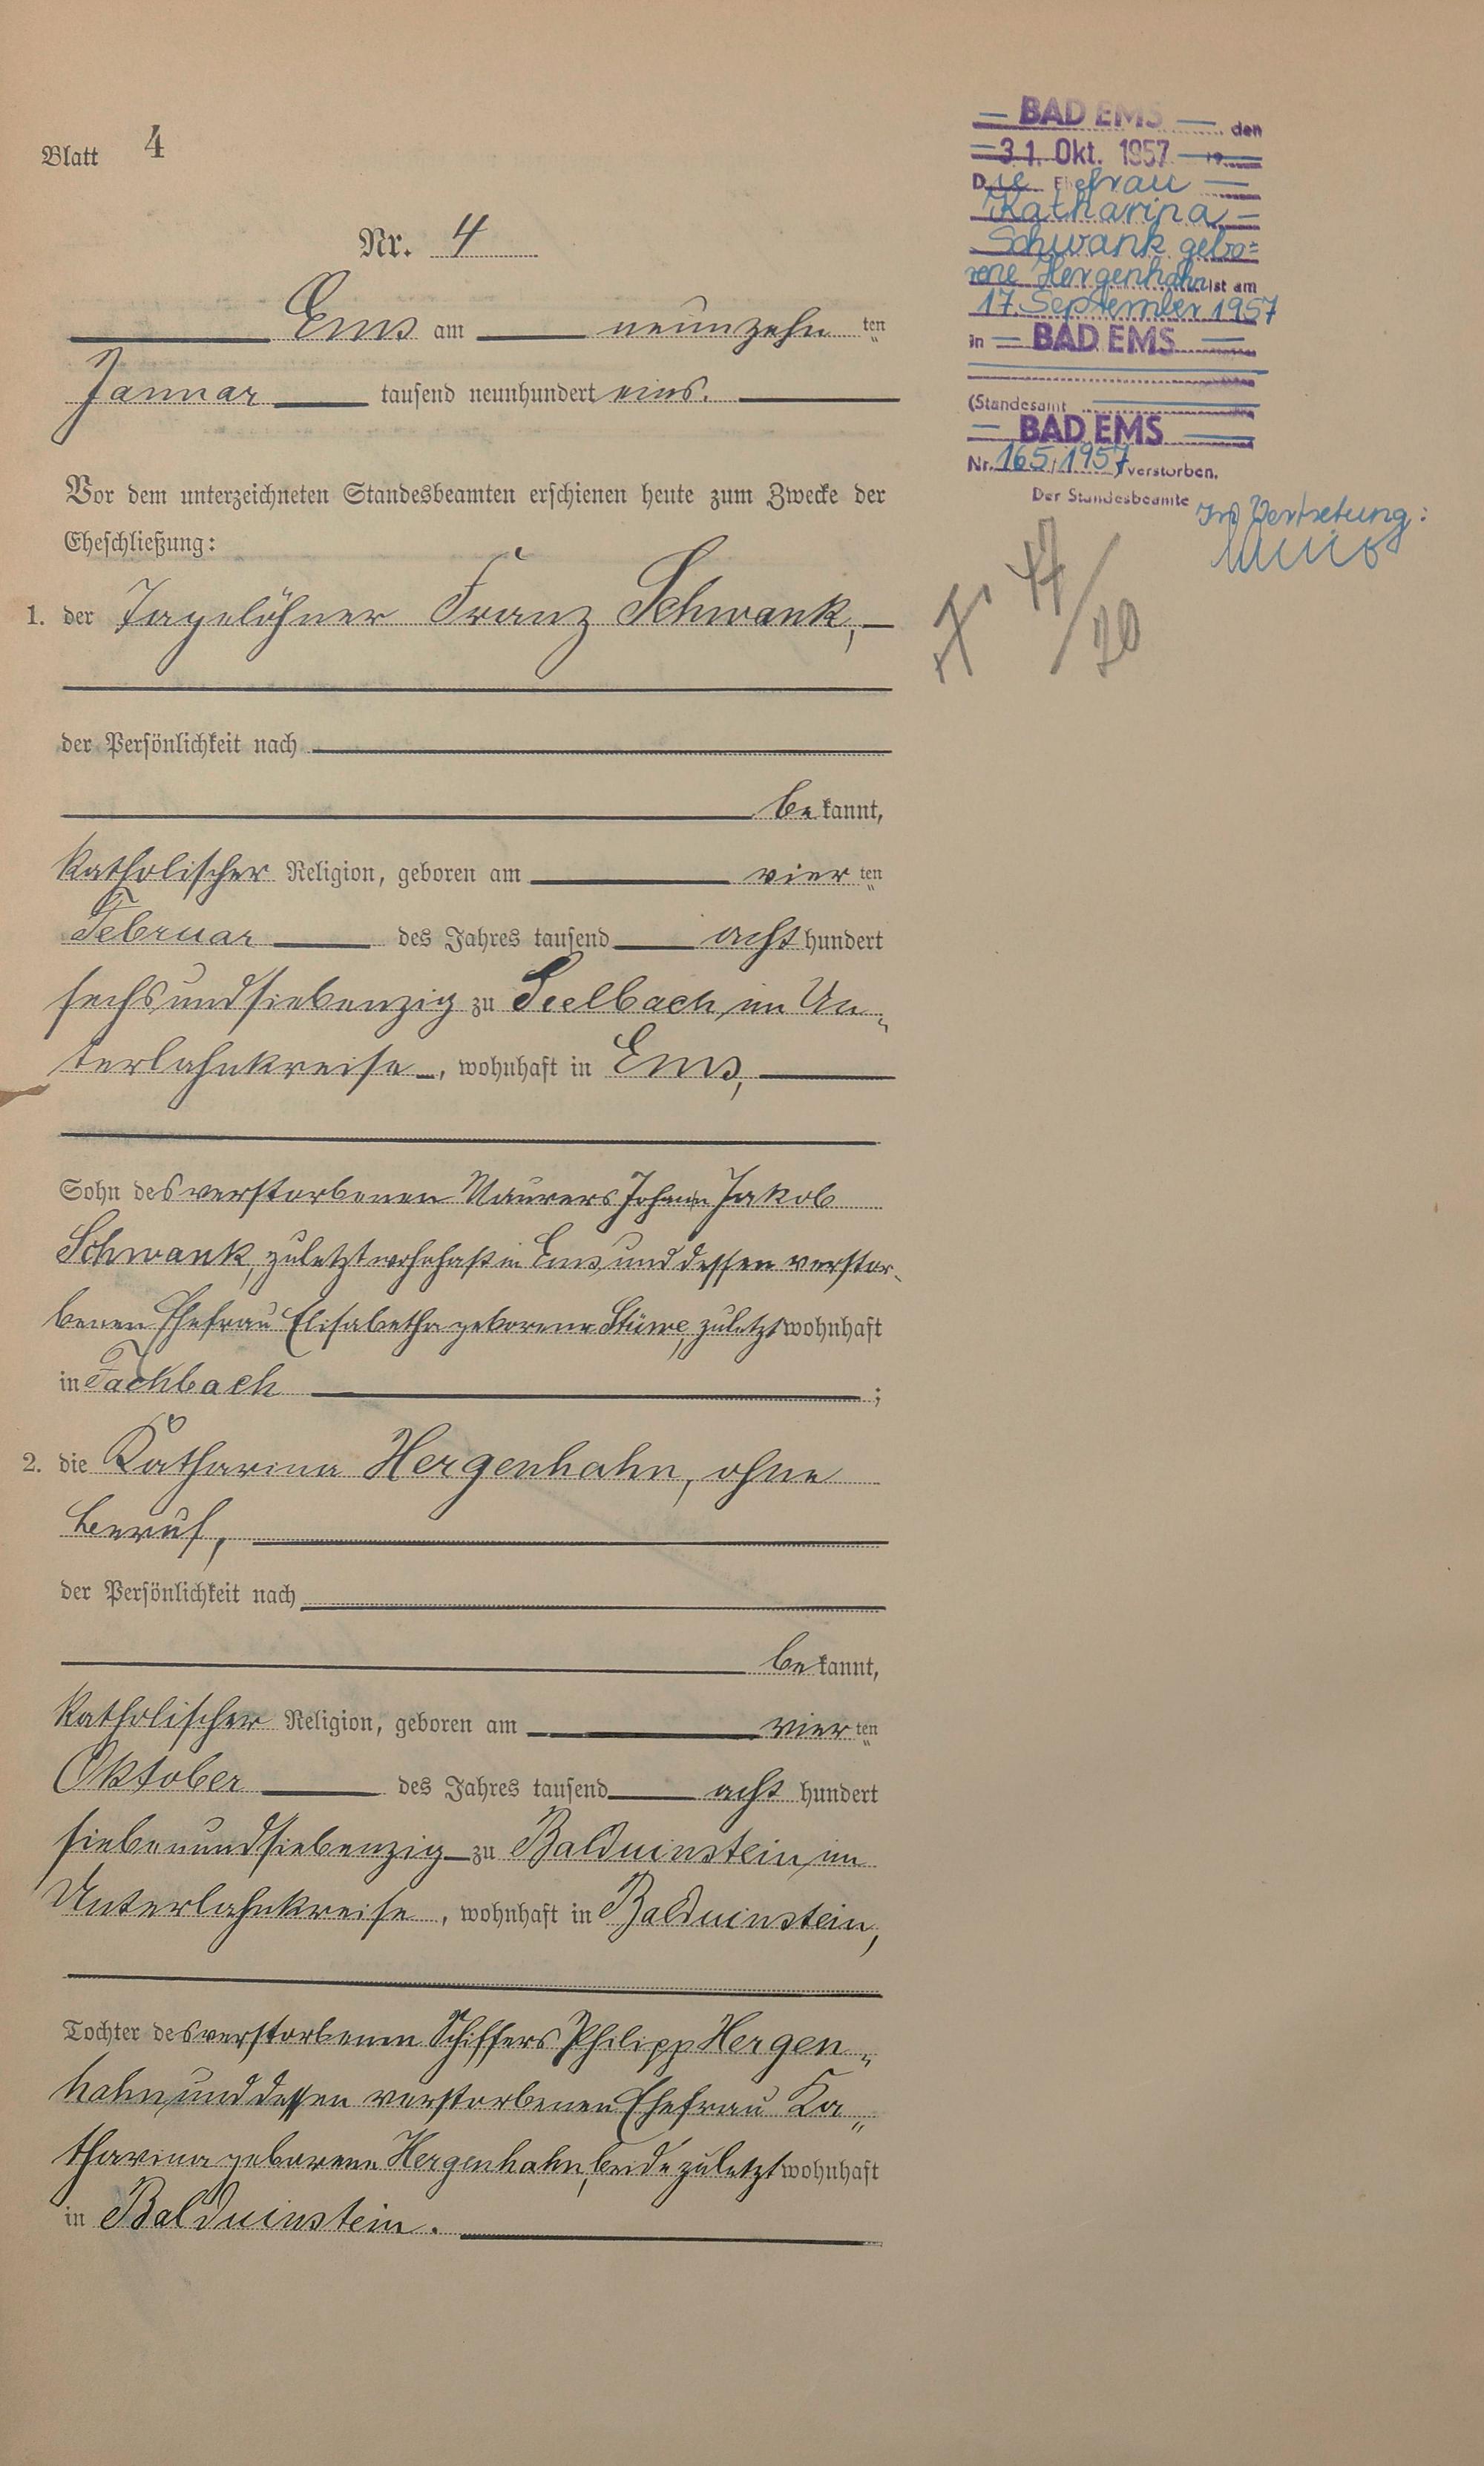 Blatt 4
Nr. 4
Ems am neunzehn ten
Januar tausend neunhundert eins.
Vor dem unterzeichneten Standesbeamten erschienen heute zum Zwecke der
Eheschließung:
1. der Tagelöhner Franz Schwank,
der Persönlichkeit nach
be kannt,
katholischer Religion, geboren am vier ten
Februar des Jahres tausend acht hundert
sechsundsiebenzig zu Seelbach im Un„
terlahnkreise, wohnhaft in Ems,
Sohn des verstorbenen Maurers Johann Jakob
Schwank, zuletzt wohnhaft in Ems und dessen verstor„
benen Ehefrau Elisabetha geborene Stüwe, zuletzt wohnhaft
in Fachbach ;
2. die Katharina Hergenhahn, ohne
Beruf,
der Persönlichkeit nach
be kannt,
katholischer Religion, geboren am vier ten
Oktober des Jahres tausend acht hundert
siebenundsiebenzig zu Balduinstein im
Unterlahnkreise, wohnhaft in Balduinstein,
Tochter des verstorbenen Schiffers Philipp Hergen„
hahn und dessen verstorbenen Ehefrau Ka„
tharina geborene Hergenhahn, beide zuletzt wohnhaft
in Balduinstein.
BAD EMS den
31. Okt. 1957 19
Die Ehefrau
Katharina
Schwank gebo=
rene Hergenhahn ist am
17. September 1957
in BAD EMS
(Standesamt
BAD EMS
Nr. 165/1957 verstorben.
Der Standesbeamte
In Vertretung: